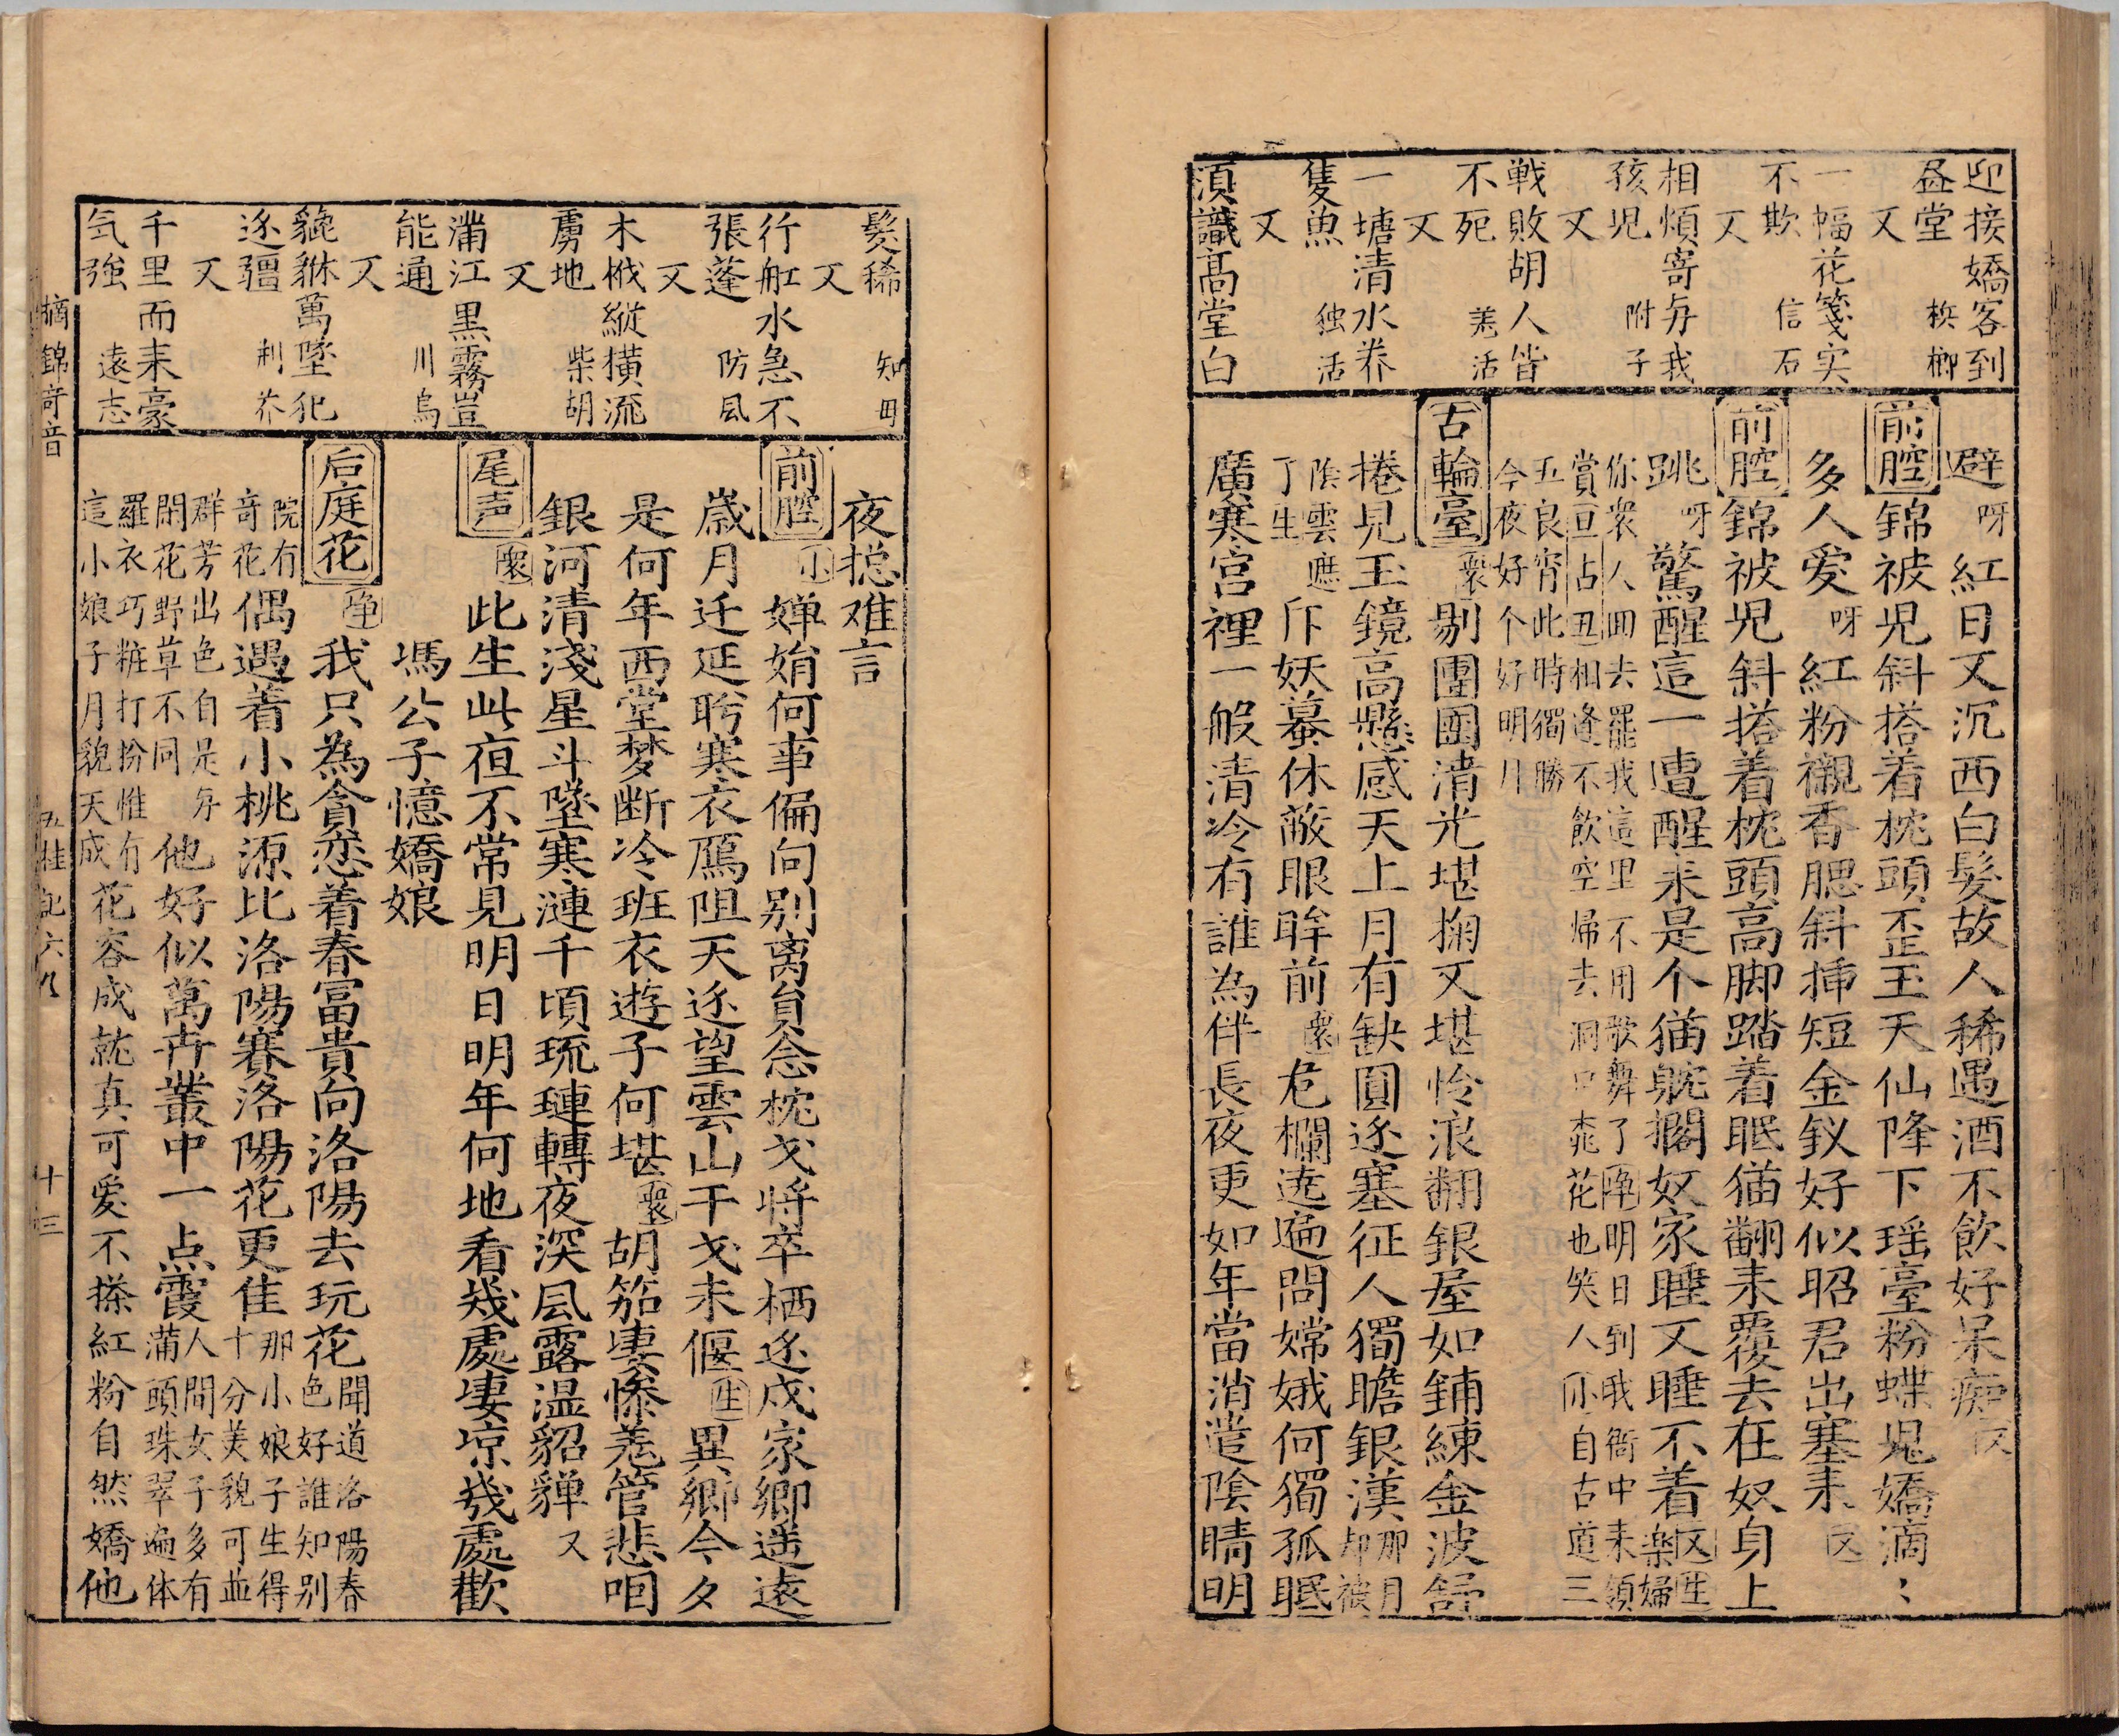 迎接嬌客到
昼堂 梹榔
又
一幅花箋实
不欺 信石
又
相煩寄与我
孩児 附子
又
戦敗胡人皆
不死 羌活
又
一塘清水养
隻魚 独活
又
須識髙堂白
避呀紅日又沉西白髮故人稀遇酒不飲好呆痴
前腔 錦被児斜搭着枕頭歪玉天仙降下瑶臺粉蝶児嬌滴〻
多人愛呀紅粉襯香腮斜揷短金釵好似昭君出塞来又
前腔 錦被児斜搭着枕頭高脚踏着眠猫翻来覆去在奴身上
跳呀驚醒這一遭醒来是个猫躭擱奴家睡又睡不着又生楽婦
你衆人回去罷我這里不用歌舞了净明日到我衙中来領
賞亘占丑相逢不飲空帰去洞口桃花也笑人小自古道三
五良宵此時獨勝
今夜好个好明月
古輪臺 衆剔團圞清光堪掬又堪怜浪翻銀屋如鋪練金波舒
捲見玉鏡高懸感天上月有缺圓逐塞征人獨瞻銀漢那月却被
陰雲遮了生斥妖蟇休蔽眼眸前衆危欄遶遍問嫦娥何獨孤眠
廣寒宮裡一般清冷有誰為伴長夜更如年當消遣陰晴明
髮稀 知毋
又
行舡水急不
張蓬 防風
又
木栰縱横流
虜地 柴胡
又
蒲江黒霧豈
能通 川烏
又
貔貅萬墜犯
逐疆 荆芥
又
千里而来豪
気強 遠志
夜揔难言
前腔 小婵娟何事偏向别离貟念枕戈将卒栖逐戍家卿遥遠
歳月迁延盻寒衣鴈阻天逐望雲山干戈未偃生異卿今夕
是何年西堂梦断冷班衣遊子何堪衆胡笳凄惨羌管悲咽
銀河清淺星斗墜寒漣千頃琉璉轉夜深風露温貂貚又
尾声 衆此生此亱不常見明日明年何地看㡬處凄凉㡬處歡
馮公子憶嬌娘
后庭花 净我只為貪恋着春富貴向洛陽去玩花聞道洛陽春色好誰知别
院有奇花偶遇着小桃源比洛陽賽洛陽花更佳那小娘子生得十分美貌可並
群芳出色自是与閑花野草不同他好似萬卉叢中一点霞人間女子多有蒲頭珠翠遍体
羅衣巧粧打扮惟有這小娘子月貌天成花容成就真可愛不搽紅粉自然嬌他
摘錦竒音
五桂記六乂
十三